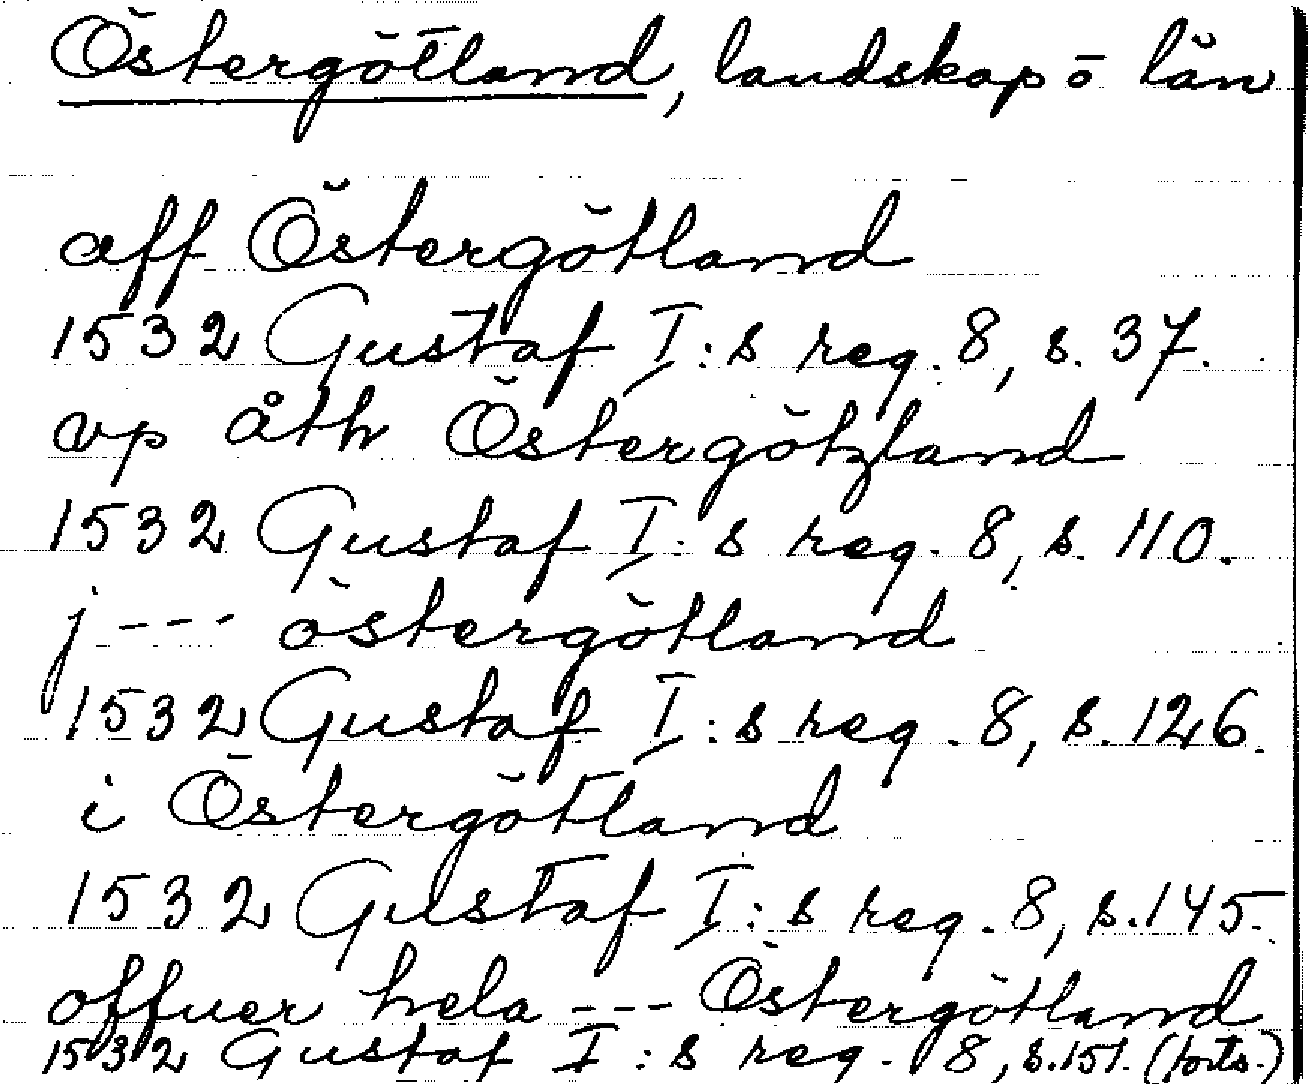 Östergötland, landskap o län
aff Östergötland
1532 Gustaf I:s reg. 8, s. 37.
vp åth Östergötzland
1532 Gustaf I:s reg. 8, s. 110.
j --- östergötland
1532 Gustaf I:s reg. 8, s. 126.
i Östergötland
1532 Gustaf I:s reg. 8, s. 145.
offuer hela --- Östergötland
1532 Gustaf I:s reg. 8, s. 151. (forts.)